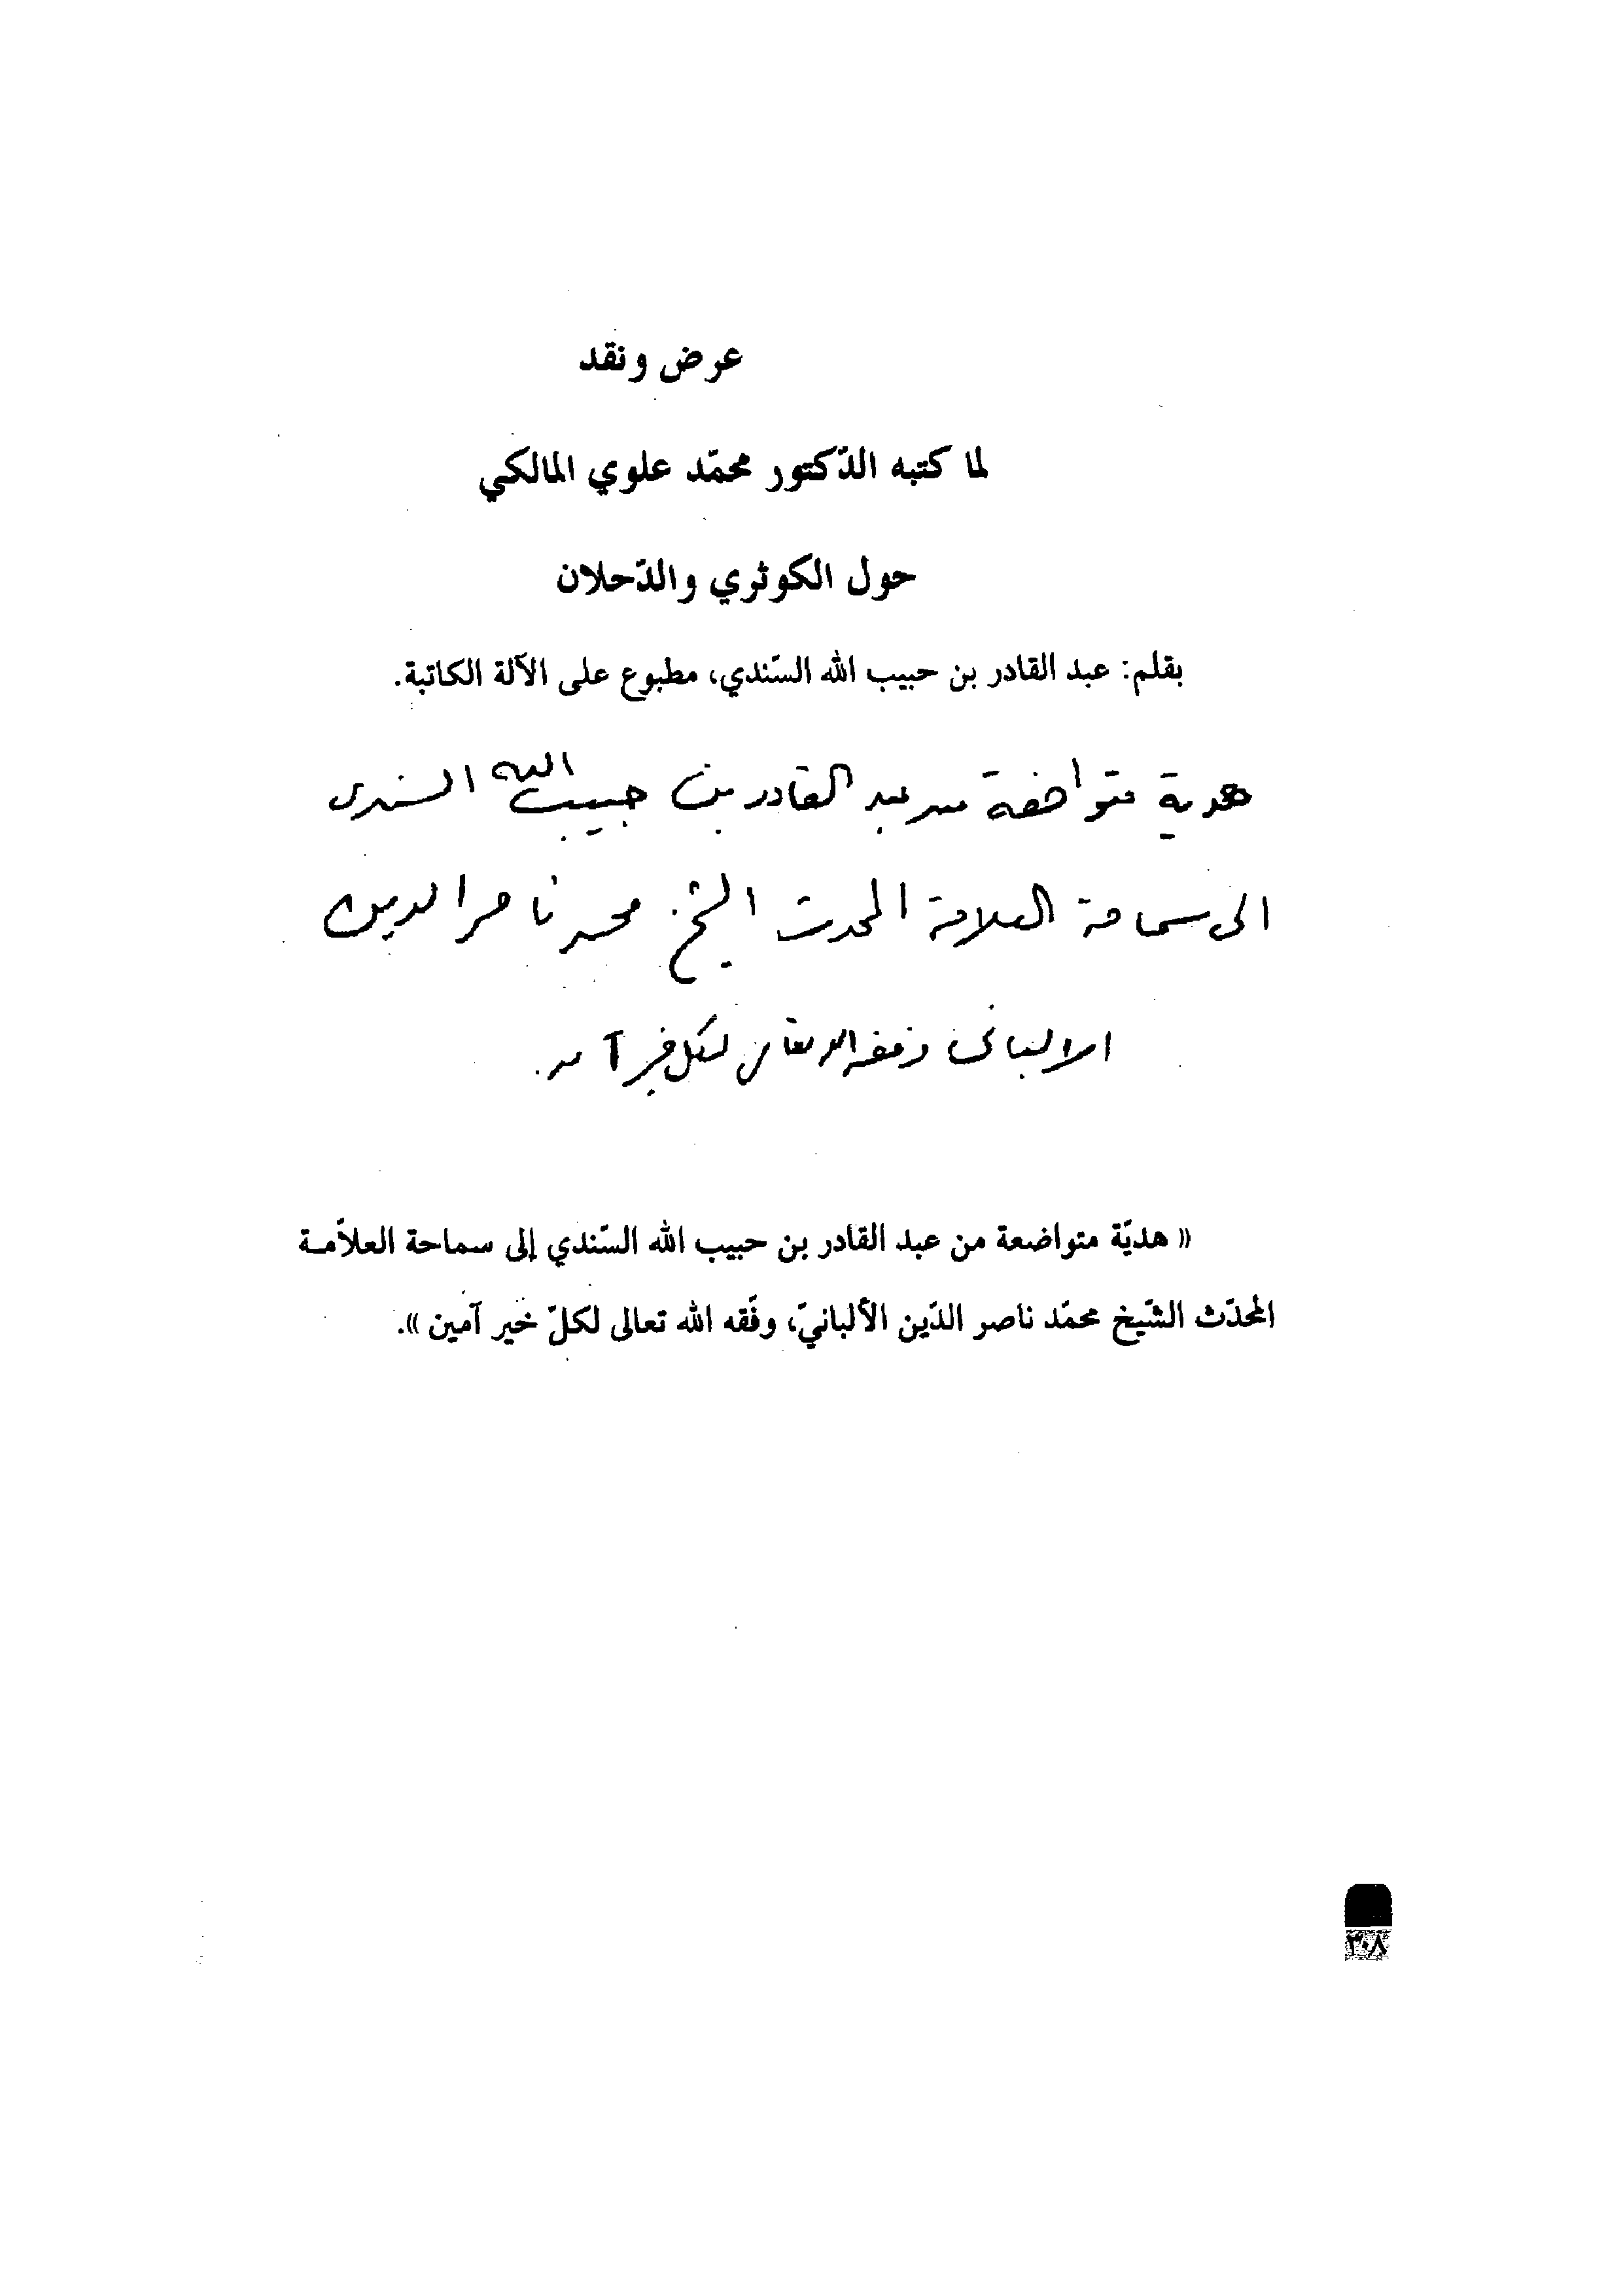 عرض ونقد
لما كتبه الدّكتور محمّد علوي المالكي
حول الكوثري والدّحلان
بقلم: عبد القادر بن حبيب الله السّندي، مطبوع على الآلة الكاتبة.
هدية متواضعة من عبد القادر بن حبيب الله السندى
الى سماحة العلامة المحدث الشيخ محمد ناصر الدين
الالبانى وفقه الله تعالى لكل خير آمين.
« هديّة متواضعة من عبد القادر بن حبيب الله السّندي إلى سماحة العلاّمـة
المحدّث الشّيخ محمّد ناصر الدّين الألبانيّ، وفّقه الله تعالى لكلّ خير آمين ».
٣٠٨